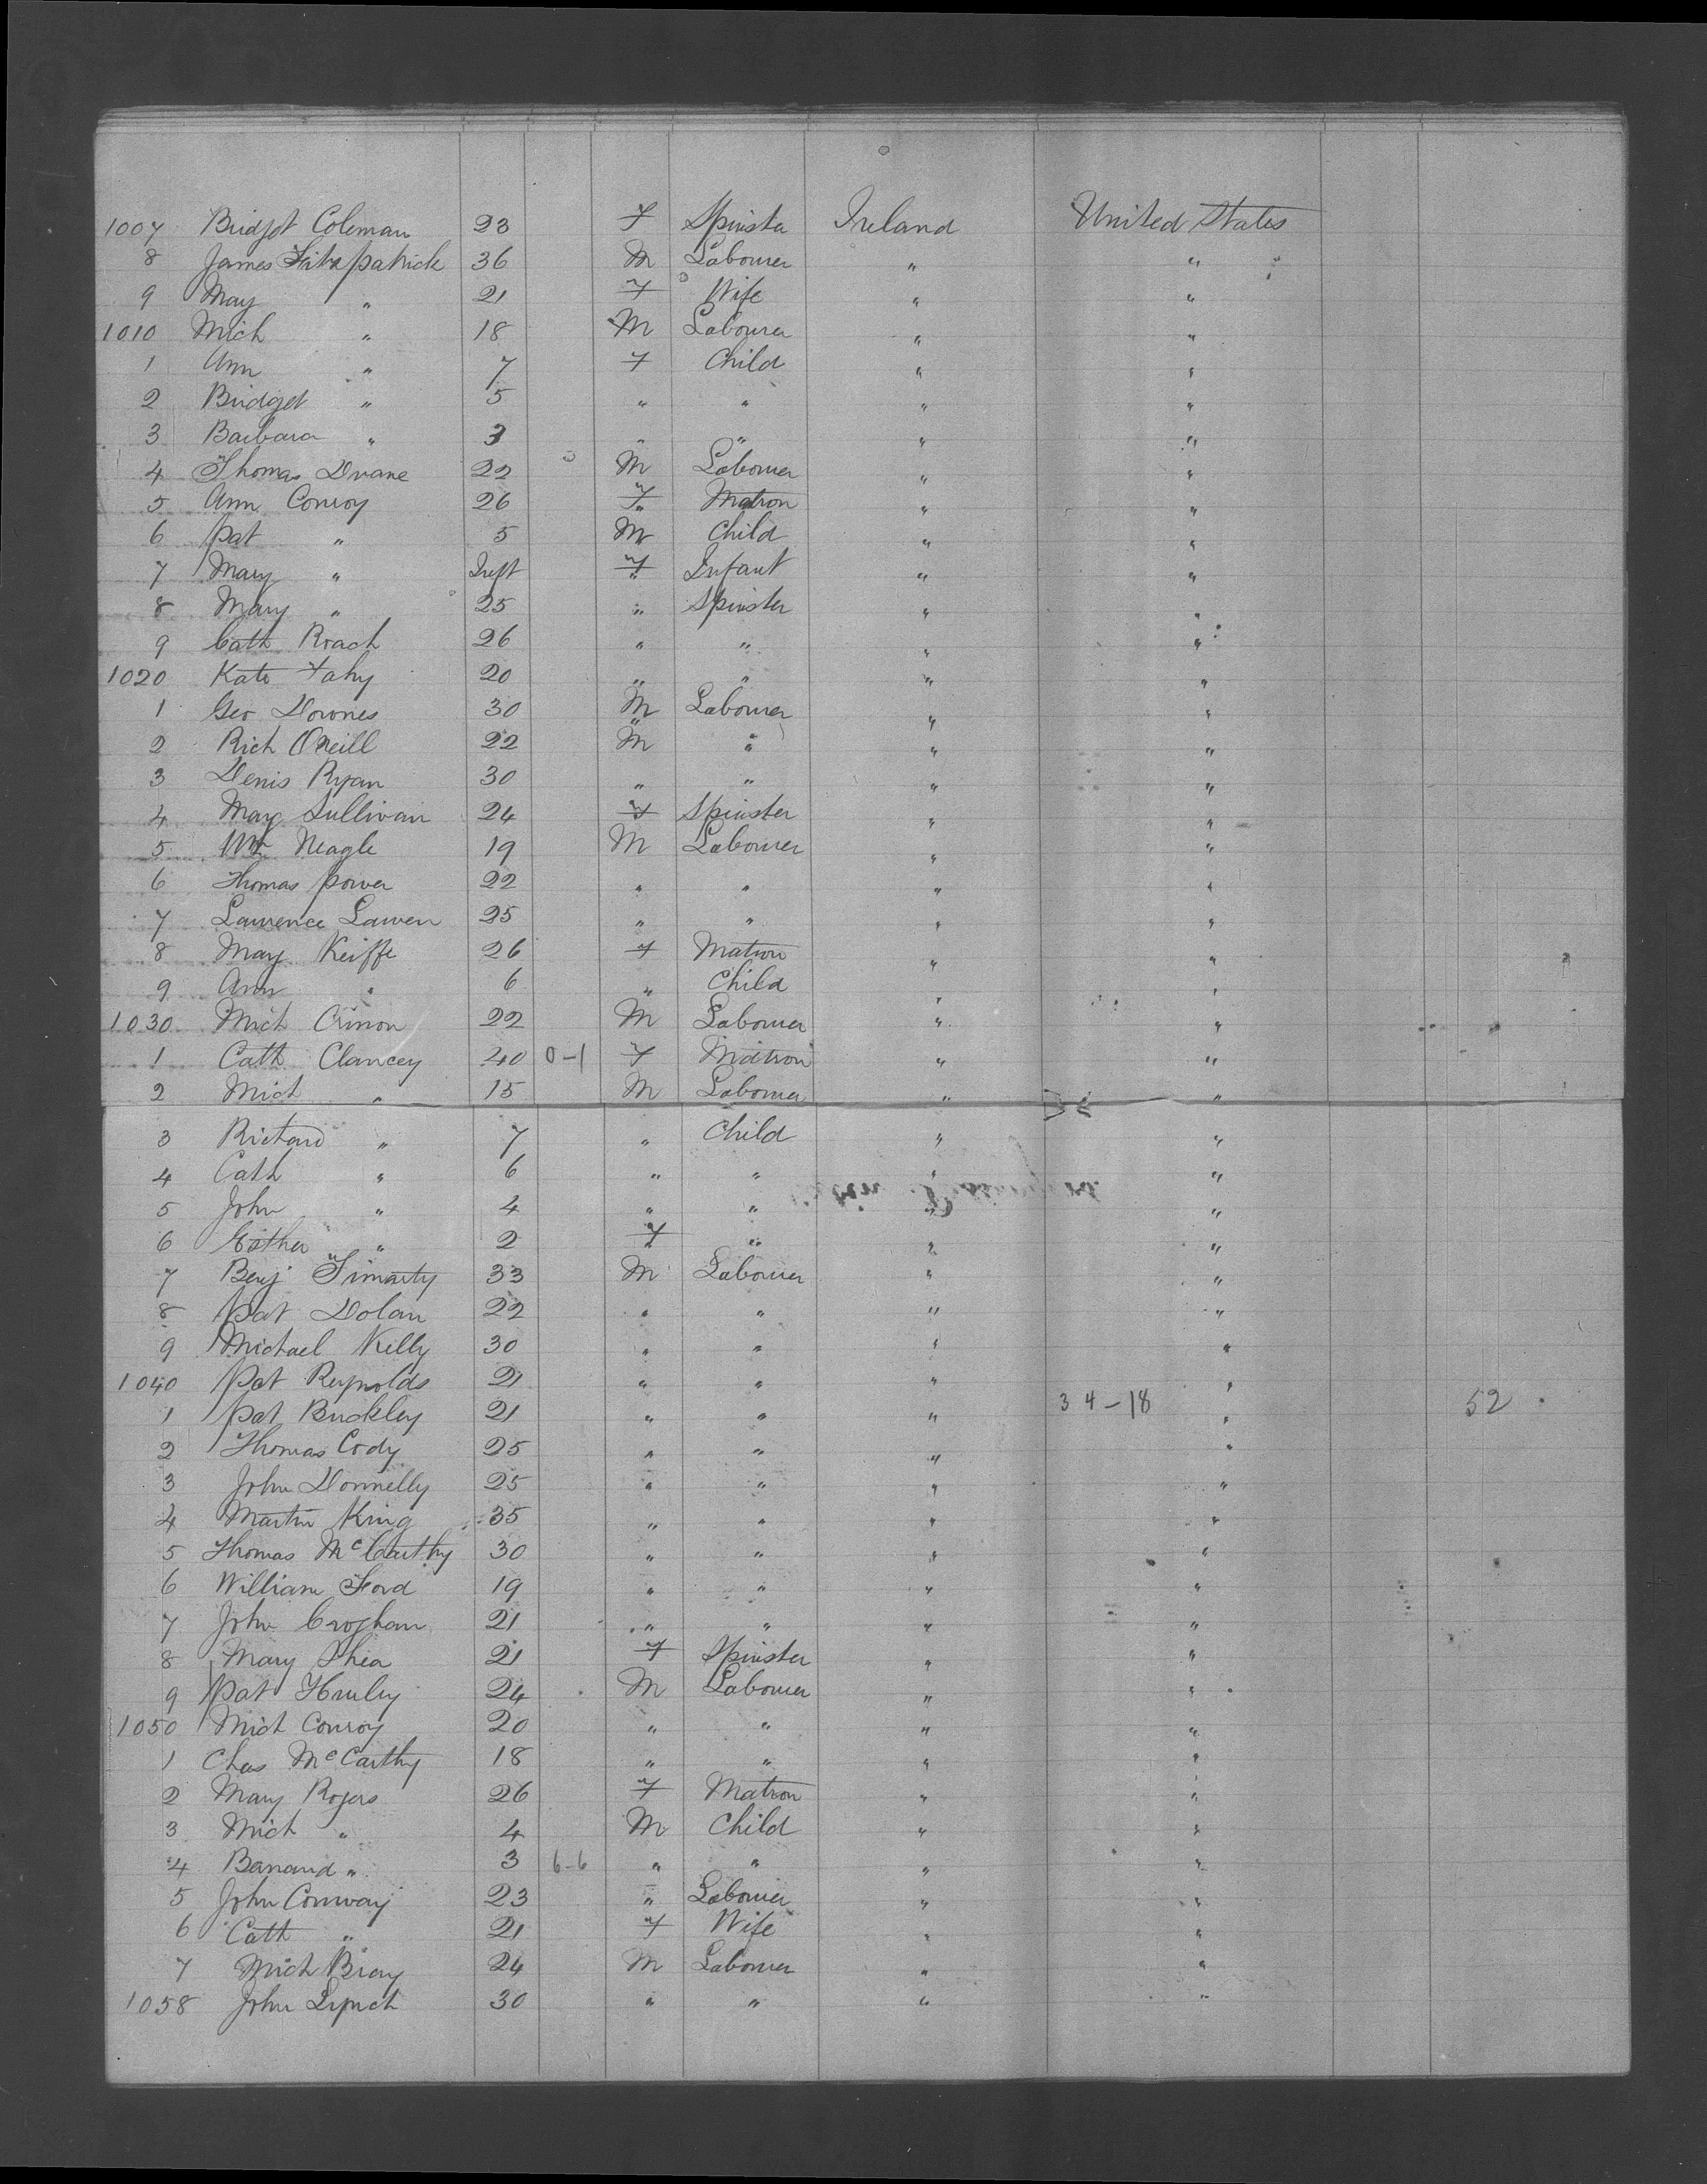 1007 Bridget Coleman 23 F Spinster Ireland United States
8 James Fitzpatrick 36 M Labourer " "
9 May " 21 F Wife " "
1010 Mich " 18 M Labourer " "
1 Ann " 7 F Child " "
2 Bridget " 5 " " " "
3 Barbara " 3 " " " "
4 Thomas Duane 22 M Labourer " "
5 Ann Conroy 26 F Matron " "
6 Pat " 5 M Child " "
7 Mary " Inft F Infant " "
8 Mary " 25 " Spinster " "
9 Cath Roach 26 " " " "
1020 Kate Fahy 20 " " " "
1 Geo Downes 30 M Labourer " "
2 Rich ONeill 22 M " " "
3 Denis Ryan 30 " " " "
4 May Sullivan 24 F Spinster " "
5 Wm Neagle 19 M Labourer " "
6 Thomas Power 22 " " " "
7 Lawrence Lawen 25 " " " "
8 May Keiffe 26 F Matron " "
9 Ann " 6 " Child " "
1030 Mich Crinon 22 M Labourer " "
1 Cath Clancey 40 0-1 F Matron " "
2 Mich " 15 M Labourer " "
3 Richard " 7 " Child " "
4 Cath " 6 " " " "
5 John " 4 " " " "
6 Esther " 2 F " " "
7 Benj Finarty 33 M Labourer " "
8 Pat Dolan 22 " " " "
9 Michael Kelly 30 " " " "
1040 Pat Reynolds 21 " " " "
1 Pat Buckley 21 " " " 34-18 " 52
2 Thomas Cody 25 " " " "
3 John Donnelly 25 " " " "
4 Martin King 35 " " " "
5 Thomas McCarthy 30 " " " "
6 William Ford 19 " " " "
7 John Croghan 21 " " " "
8 Mary Shea 21 F Spinster " "
9 Pat Hurley 24 M Labourer " "
1050 Mich Conroy 20 " " " "
1 Chas McCarthy 18 " " " "
2 Mary Rogers 26 F Matron " "
3 Mich " 4 M Child " "
4 Banard " 3 6-6 " " " "
5 John Conway 23 " Labourer " "
6 Cath " 21 F Wife " "
7 Mich Bray 24 M Labourer " "
1058 John Lynch 30 " " " "